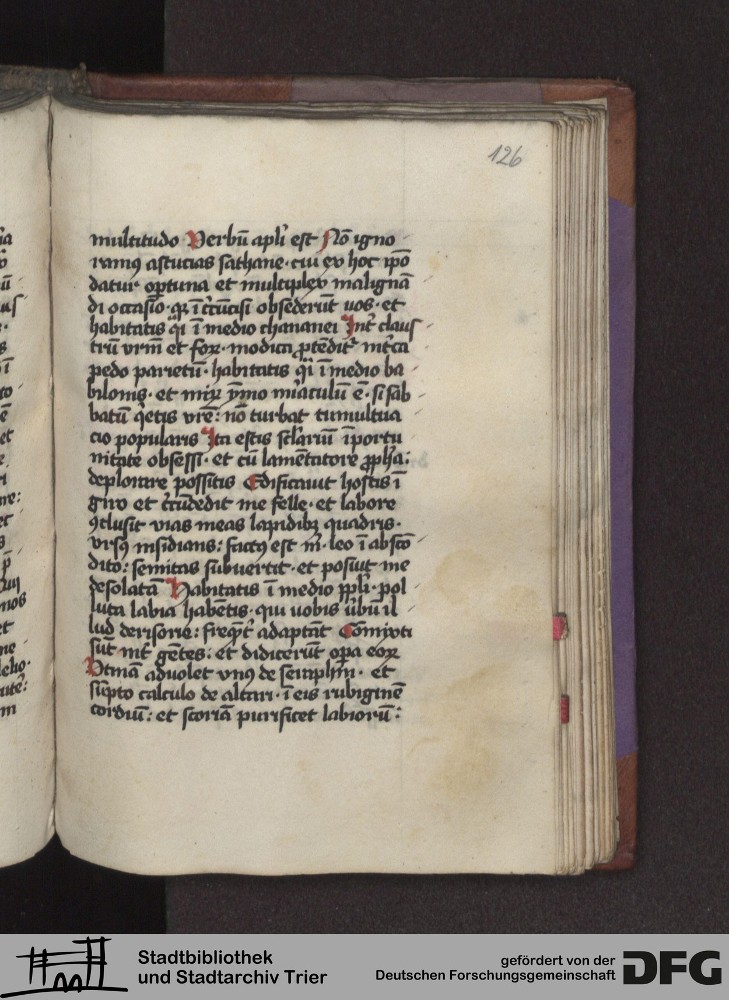 126
multitudo Verbū apli est Nō igno
ramꝰ astucias sathane · cui ex hoc ip̄o
datur optima et multiplex malignā
di occasio · qꝛ ī cr̄ūcisi obsederūt uos · et
habitatis q̄i ī medio chananei Int̄ claus
trū vrm̄ et forꝫ · modica ꝓtēdit᷑ mt̄ca
pedo parietū · habitatis q̄i ī medio ba
bilonis · et
mīaculū ē · si sab
batū q̄etis vrē : nō turbat tumultua
cio popularis Ita estis sc̄lariū īportu
nitate obsessi · et cū lamētatore ꝓpha :
deplorare possitis Edificauit hostis ī
giro et cr̄ūdedit me felle · et labore
ꝯclusit vias meas lapidibꝫ quadris ·
vrsꝰ insidians : factꝰ est m̄ · leo ī absco
dito : semitas subuertit · et posuit me
desolatā Habitatis ī medio ppl̄i · pol
luta labia habētis · qui uobis ūbū il
lud derisorie : freqn̄t adaptāt Comixti
sūt int̄ gētes : et didicerūt opa eoꝝ
Vtinā aduolet vnꝰ de seraphī · et
sūpto calculo de altari · ī eis rubiginē
cordiū : et scoriā purificet labiorū :
Stadtbibliothek
und Stadtarchiv Trier
gefördert von der
Deutschen Forschungsgemeinschaft
DFG